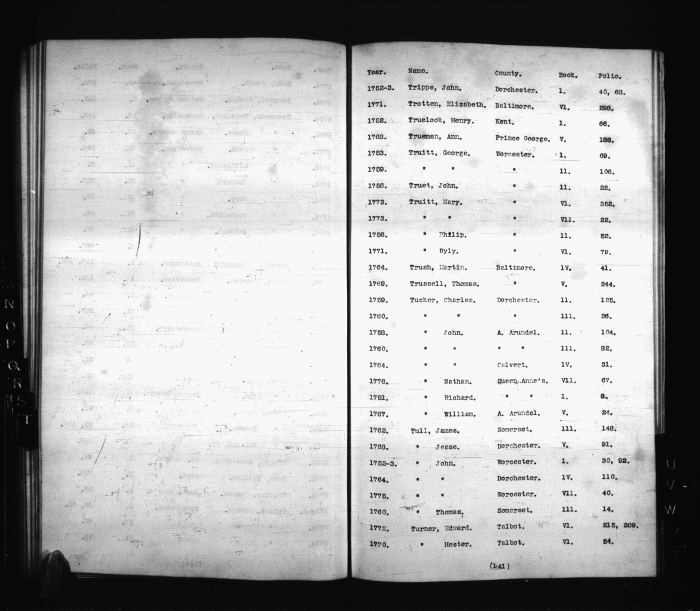 Year. Name. County. Book. Folio.
1752-3. Trippe, John. Dorchester. 1. 40, 63.
1771. Trotten, Elizabeth. Baltimore. V1. 296.
1752. Truelock, Henry. Kent. 1. 66.
1763. Trueman, Ann. Prince George. V. 188.
1753. Truitt, George. Worcester. 1. 69.
1759. " " " 11. 106.
1756. Truet, John. " 11. 22.
1773. Truitt, Mary. " V1. 352.
1773. " " " V11. 22.
1758. " Philip. " 11. 52.
1771. " Ryly. " V1. 79.
1764. Trush, Martin. Baltimore. 1V. 41.
1769. Trussell, Thomas. " V. 244.
1759. Tucker, Charles. Dorchester. 11. 125.
1760. " " " 111. 26.
1758. " John. A. Arundel. 11. 104.
1760. " " " " 111. 32.
1764. " " Calvert. 1V. 31.
1776. " Nathan. Queen Anne's. V11. 67.
1751. " Richard. " " 1. 8.
1767. " William. A. Arundel. V. 24.
1762. Tull, James. Somerset. 111. 148.
1768. " Jesse. Dorchester. V. 91.
1752-3. " John. Worcester. 1. 30, 92.
1764. " " Dorchester. 1V. 110.
1775. " " Worcester. V11. 40.
1760. " Thomas. Somerset. 111. 14.
1772. Turner, Edward. Talbot. V1. 215, 269.
1770. " Hester. Talbot. V1. 54.
(141)
U
V
W